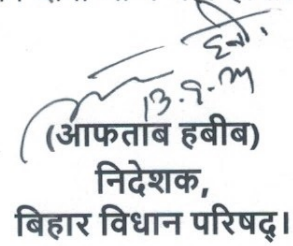 13.9.21
(आफताब हबीब)
निदेशक,
बिहार विधान परिषद्।